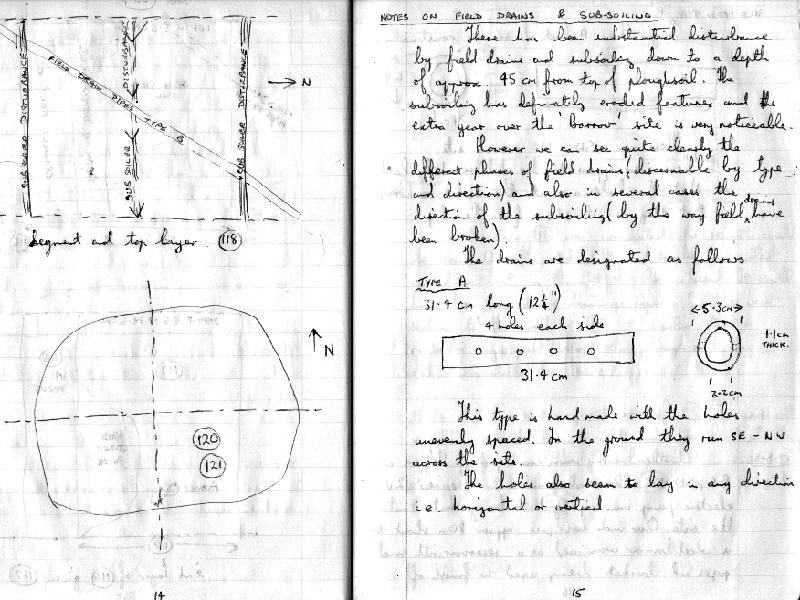 SUB SOILER DISTURBANCE
FIELD DRAIN PIPES TYPE B
SUB SOILER DISTURBANCE
SUB SOILER DISTURBANCE
N
Segment and top layer. 118
N
120
121
14
NOTES ON FIELD DRAINS & SUB-SOILING
There has been substantial disturbance
by field drains and subsoiling down to a depth
of approx. 45 cm from top of ploughsoil. The
subsoiling has definitely eroded features and the
extra year over the 'Borrow' site is very noticeable.
However we can see quite clearly the
different phases of field drains (discernable by type
and direction) and also in several cases the
direction of the subsoiling (by the way field drains have
been broken).
The drains are designated as follows
TYPE A
31.4 cm long (12¼")
4 holes each side
31.4 cm
5.3cm
1.1cm
THICK.
2.2cm
This type is hand made with the holes
unevenly spaced. In the ground they run SE - NW
across the site.
The holes also seem to lay in any direction
i.e. horizontal or vertical.
15